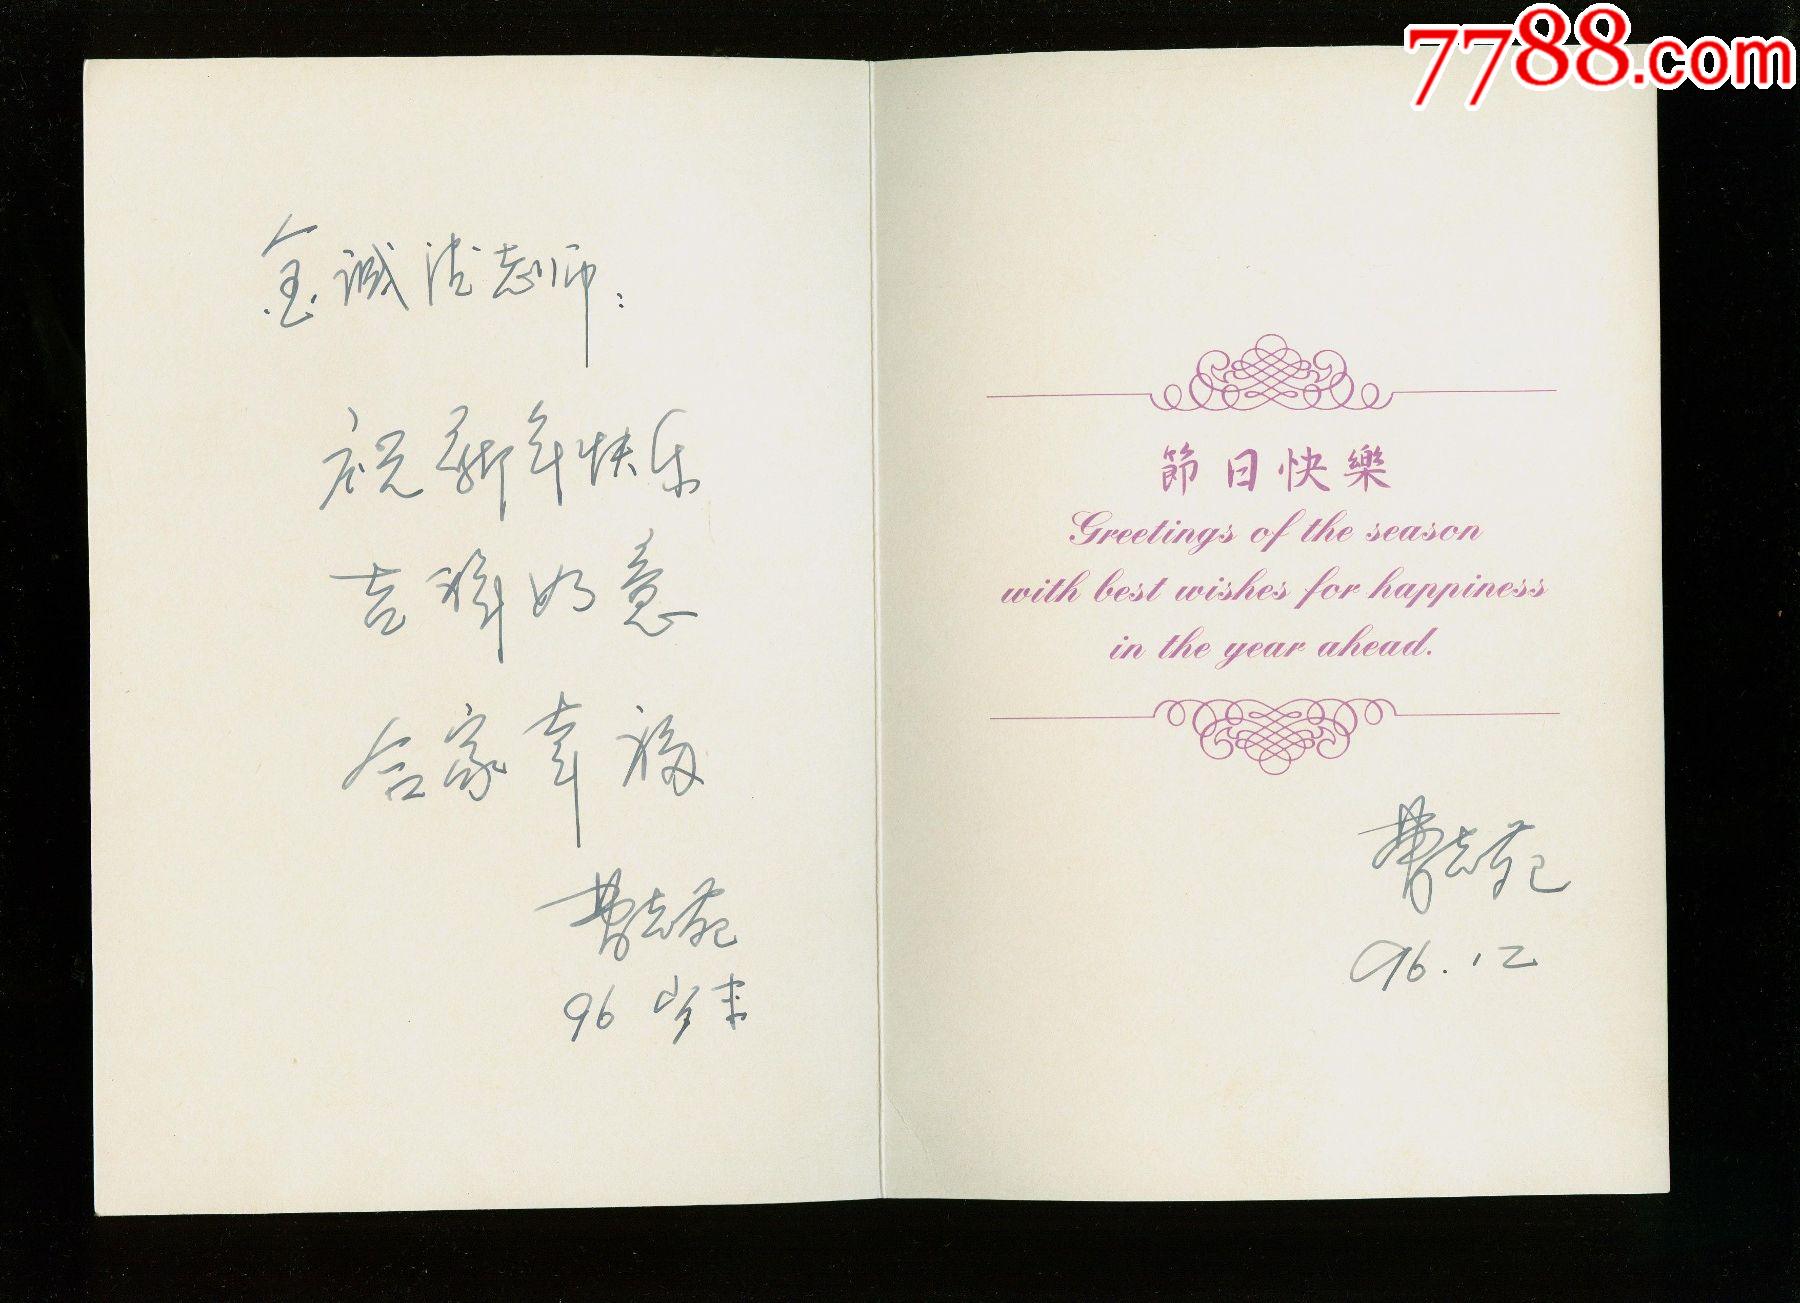 7788.com
金诚法老师:
祝新年快乐
吉祥如意
合家幸福
曹志苑
96 岁末
節日快樂
Greetings of the season
with best wishes for happiness
in the year ahead.
曹志苑
96.12